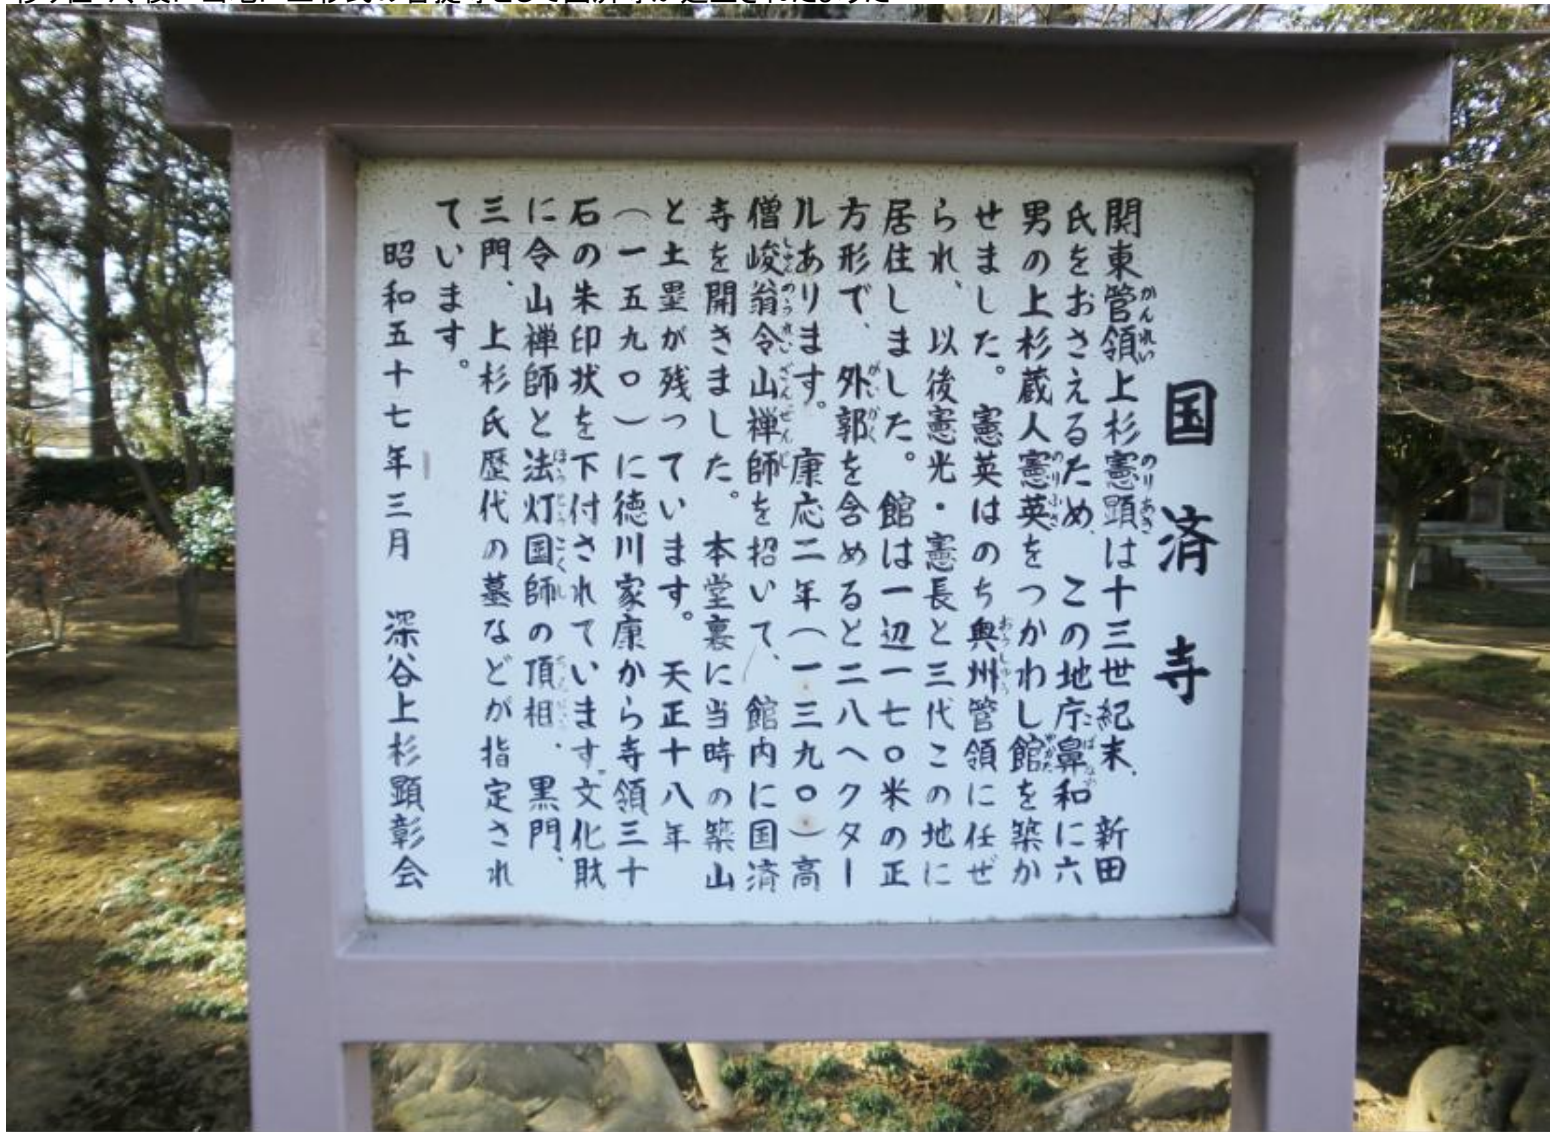 国済寺
関東管領上杉憲顕は十三世紀末、新田
氏をおさえるため、この地庁鼻和に六
男の上杉蔵人憲英をつかわし館を築か
せました。憲英はのち奥州管領に任ぜ
られ、以後憲光・憲長と三代この地に
居住しました。館は一辺一七〇米の正
方形で、外郭を含めると二八ヘクター
ルあります。康応二年(一三九〇)高
僧峻翁令山禅師を招いて、館内に国済
寺を開きました。本堂裏に当時の築山
と土塁が残っています。天正十八年
(一五九〇)に徳川家康から寺領三十
石の朱印状を下付されています。文化財
に令山禅師と法灯国師の頂相、黒門、
三門、上杉氏歴代の墓などが指定され
ています。
昭和五十七年三月 深谷上杉顕彰会